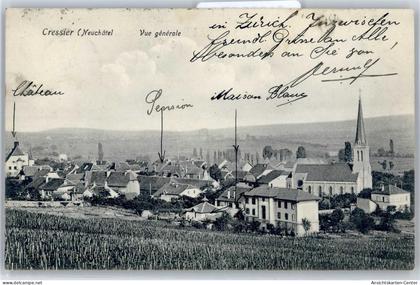 Cressier (Neuchâtel
Vue générale
in Zürich. Inzwischen
Grüne an Alle,
besonders an Sie von
Château
Pension
Maison Blanc
Ansichtskarten-Center